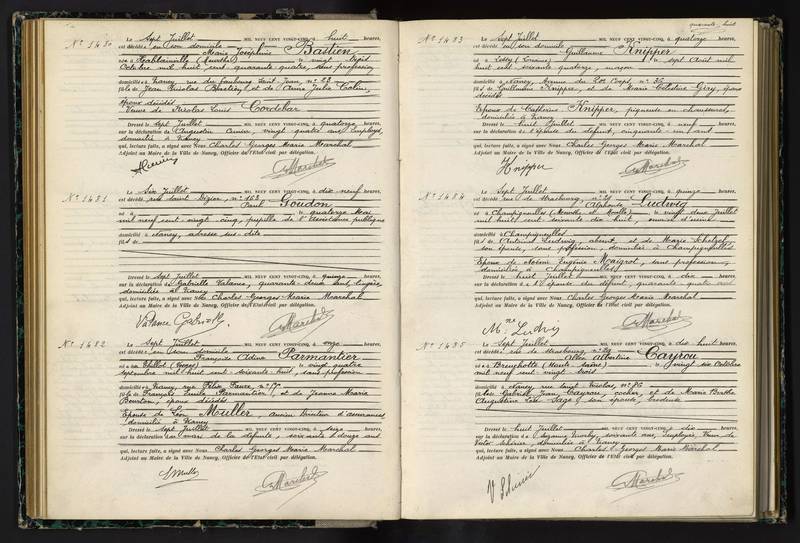 quarante-huit
N° 1480
Le Sept Juillet MIL NEUF CENT VINGT-CINQ, à huit heures,
est décédée en son domicile
Marie Joséphine Bastien
née à (Meurthe) le vingt sept
Octobre mil huit cent quarante quatre, sans profession
domiciliée à Nancy, rue du faubourg Saint Jean, n° 22
fille de Jean Nicolas Bastien, et de Anne Julie
époux décédés
Veuve de Nicolas Louis Cordebar
Dressé le sept Juillet MIL NEUF CENT VINGT-CINQ, à quatorze heures,
sur la déclaration de Augustin vingt quatre ans, employé,
domicilié à Nancy
qui, lecture faite, a signé avec Nous Charles Georges Marie Maréchal
Adjoint au Maire de la Ville de Nancy, Officier de l'Etat civil par délégation.
GMarechal
N° 1481
Le Six Juillet MIL NEUF CENT VINGT-CINQ, à dix neuf heures,
est décédé rue Saint Dizier, n° 162
Paul Goudon
né à le quatorze Mai
mil neuf cent vingt-cinq, pupille de l'Assistance publique
domicilié à Nancy, adresse sus-dite
fils de
Dressé le sept Juillet MIL NEUF CENT VINGT-CINQ, à quinze heures,
sur la déclaration de Gabrielle Valance, quarante-deux ans,
domiciliée à Nancy
qui, lecture faite, a signé avec Nous Charles Georges Marie Maréchal
Adjoint au Maire de la Ville de Nancy, Officier de l'Etat civil par délégation.
Valance Gabrielle
GMarechal
N° 1482
Le Sept Juillet MIL NEUF CENT VINGT-CINQ, à onze heures,
est décédée en son domicile
Françoise Parmantier
née à Thillot (Vosges) le vingt quatre
septembre mil huit cent soixante huit, sans profession
domiciliée à Nancy, rue Félix Faure n° 77
fille de François Emile Parmantier, et de Jeanne Marie
époux décédés
Epouse de Léon Muller, ancien Directeur d'assurances
domicilié à Nancy
Dressé le sept Juillet MIL NEUF CENT VINGT-CINQ, à seize heures,
sur la déclaration du mari de la défunte, soixante douze ans
qui, lecture faite, a signé avec Nous Charles Georges Marie Maréchal
Adjoint au Maire de la Ville de Nancy, Officier de l'Etat civil par délégation.
Muller
GMarechal
N° 1483
Le Sept Juillet MIL NEUF CENT VINGT-CINQ, à quatorze heures,
est décédé en son domicile
Guillaume Knipper
né à le sept Août mil
huit cent soixante quatorze, maçon
domicilié à Nancy, Avenue du XX Corps, n° 36
fils de Guillaume Knipper, et de Marie Célestine Géry, époux
décédés
Epoux de Catherine Knipper, piqueuse en chaussures,
domiciliée à Nancy
Dressé le huit Juillet MIL NEUF CENT VINGT-CINQ, à neuf heures,
sur la déclaration de l'épouse du défunt, cinquante un ans
qui, lecture faite, a signé avec Nous Charles Georges Marie Maréchal
Adjoint au Maire de la Ville de Nancy, Officier de l'Etat civil par délégation.
Knipper
GMarechal
N° 1484
Le Sept Juillet MIL NEUF CENT VINGT-CINQ, à quinze heures,
est décédé rue de Strasbourg,
Alphonse Ludwig
né à Champigneulles (Meurthe et Moselle) le vingt deux Juillet
mil huit cent soixante dix huit, ouvrier d'usine
domicilié à Champigneulles
fils de Antoine Ludwig, absent, et de Marie
son épouse, sans profession, domiciliée à Champigneulles
Epoux de Noémi Eugénie Maigrot, sans profession,
domiciliée à Champigneulles
Dressé le huit Juillet MIL NEUF CENT VINGT-CINQ, à dix heures,
sur la déclaration de l'épouse du défunt, quarante quatre ans
qui, lecture faite, a signé avec Nous Charles Georges Marie Maréchal
Adjoint au Maire de la Ville de Nancy, Officier de l'Etat civil par délégation.
Mme Ludwig
GMarechal
N° 1485
Le Sept Juillet MIL NEUF CENT VINGT-CINQ, à dix huit heures,
est décédée rue de Strasbourg,
Albertine Cayrou
née à Breuchotte (Haute Saône) le vingt six Octobre
mil neuf cent vingt trois
domiciliée à Nancy rue Saint Nicolas, n° 86
fille de Gabriel Jean Cayrou, cocher, et de Marie Berthe
Augustine son épouse, brodeuse
Dressé le huit Juillet MIL NEUF CENT VINGT-CINQ, à dix heures,
sur la déclaration de soixante ans, employée, Veuve de
Victor domiciliée à Nancy
qui, lecture faite, a signé avec Nous Charles Georges Marie Maréchal
Adjoint au Maire de la Ville de Nancy, Officier de l'Etat civil par délégation.
GMarechal